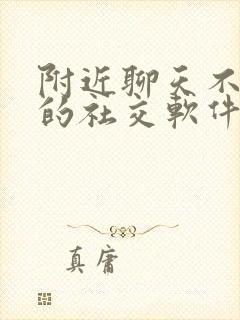 附近聊天不
的社交軟件
真庸